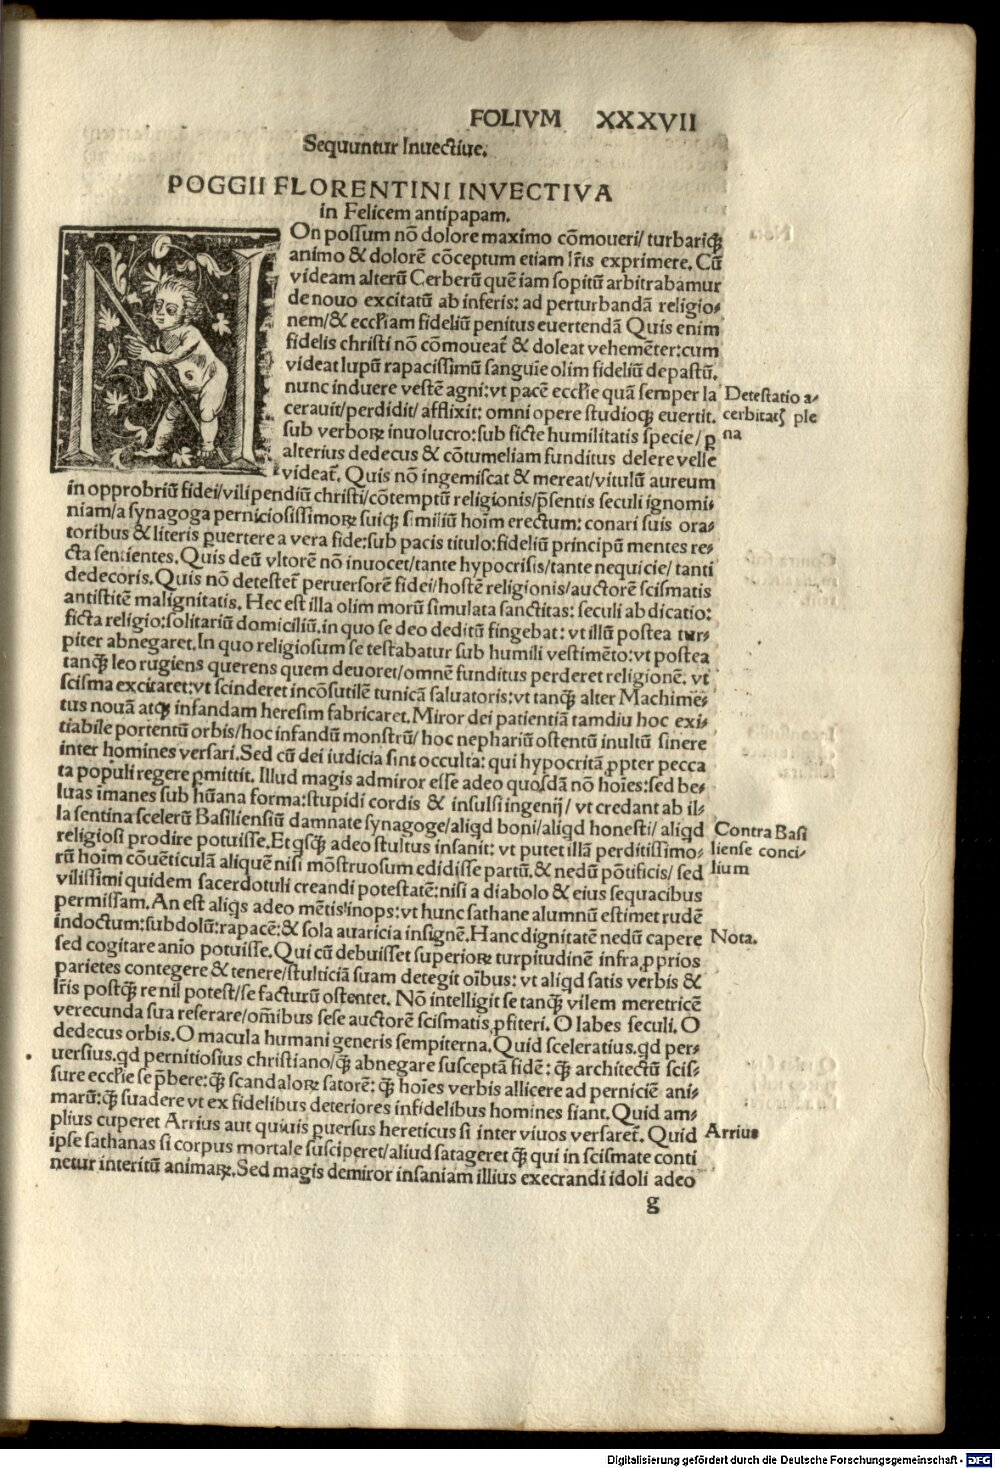 FOLIVM XXXVII
Sequuntur Inuectiue.
POGGII FLORENTINI INVECTIVA
in Felicem antipapam.
NOn possum nō dolore maximo cōmoueri/ turbariq̃
animo & dolorē cōceptum etiam lr̄is exprimere. Cū
videam alterū Cerberū quē iam sopitū arbitrabamur
de nouo excitatū ab inferis: ad perturbandā religio-
nem/& eccl'iam fideliū penitus euertendā Quis enim
fidelis christi nō cōmoueat̃ & doleat vehemēter: cum
videat lupū rapacissimū sanguīe olim fideliū depastū.
nunc induere vestē agni: vt pacē eccl'ie quā semper la
cerauit/perdidit/ afflixit: omni opere studioq̃ euertit.
sub verboꝝ inuolucro: sub ficte humilitatis specie/ ꝑ
alterius dedecus & cōtumeliam funditus delere velle
videat̃. Quis nō ingemiscat & mereat/vitulū aureum
in opprobriū fidei/vilipendiū christi/cōtemptū religionis/p̄sentis seculi ignomi-
niam/a synagoga perniciosissimoꝝ suiq̃ similiū hoīm erectum: conari suis ora-
toribus & literis ꝑuertere a vera fide: sub pacis titulo: fideliū principū mentes re-
cta sentientes. Quis deū vltorē nō inuocet/tante hypocrisis/tante nequicie/ tanti
dedecoris. Quis nō detestet̃ peruersorē fidei/hostē religionis/auctorē scismatis
antistitē malignitatis. Hec est illa olim morū simulata sanctitas: seculi abdicatio:
ficta religio: solitariū domiciliū. in quo se deo deditū fingebat: vt illū postea tur-
piter abnegaret. In quo religiosum se testabatur sub humili vestimēto: vt postea
tanq̃ leo rugiens querens quem deuoret/omnē funditus perderet religionē. vt
scisma excitaret: vt scinderet incōsutilē tunicā saluatoris: vt tanq̃ alter Machime-
tus nouā atq̃ infandam heresim fabricaret. Miror dei patientiā tamdiu hoc exi-
tiabile portentū orbis/hoc infandū monstrū/ hoc nephariū ostentū inultū sinere
inter homines versari. Sed cū dei iudicia sint occulta: qui hypocritā ꝓpter pecca
ta populi regere ꝑmittit. Illud magis admiror esse adeo quosdā nō hoīes: sed be-
luas īmanes sub hūana forma: stupidi cordis & insulsi ingenij/ vt credant ab il-
la sentina scelerū Basiliensiū damnate synagoge/aliqd boni/aliqd honesti/ aliqd
religiosi prodire potuisse. Et q̇sq̃ adeo stultus insanit: vt putet illā perditissimo-
rū hoīm cōuēticulā aliquē nisi mōstruosum edidisse partū. & nedū pōtificis/ sed
vilissimi quidem sacerdotuli creandi potestatē: nisi a diabolo & eius sequacibus
permissam. An est aliq̇s adeo mētis inops: vt hunc sathane alumnū estimet rudē
indoctum: subdolū: rapacē: & sola auaricia insignē. Hanc dignitatē nedū capere
sed cogitare anīo potuisse. Qui cū debuisset superioꝝ turpitudinē infra ꝓprios
parietes contegere & tenere/stulticiā suam detegit oībus: vt aliqd satis verbis &
lr̄is postq̃ re nil potest/se facturū ostentet. Nō intelligit se tanq̃ vilem meretricē
verecunda sua reserare/om̄ibus sese auctorē scismatis ꝓfiteri. O labes seculi. O
dedecus orbis. O macula humani generis sempiterna. Quid sceleratius. qd per-
uersius. qd pernitiosius christiano/q̃ abnegare susceptā fidē: q̃ architectū scis-
sure eccl'ie se p̄bere: q̃ scandaloꝝ satorē: q̃ hoīes verbis allicere ad perniciē ani-
marū: q̃ suadere vt ex fidelibus deteriores infidelibus homines fiant. Quid am-
plius cuperet Arrius aut quiuis ꝑuersus hereticus si inter viuos versaret̃. Quid
ipse sathanas si corpus mortale susciperet/aliud satageret q̃ qui in scismate conti
netur interitū animaꝝ. Sed magis demiror insaniam illius execrandi idoli adeo
g
Detestatio a-
cerbitatꝭ ple
na
Contra Basi
liense conci-
lium
Nota.
Arrius
Digitalisierung gefördert durch die Deutsche Forschungsgemeinschaft - DFG